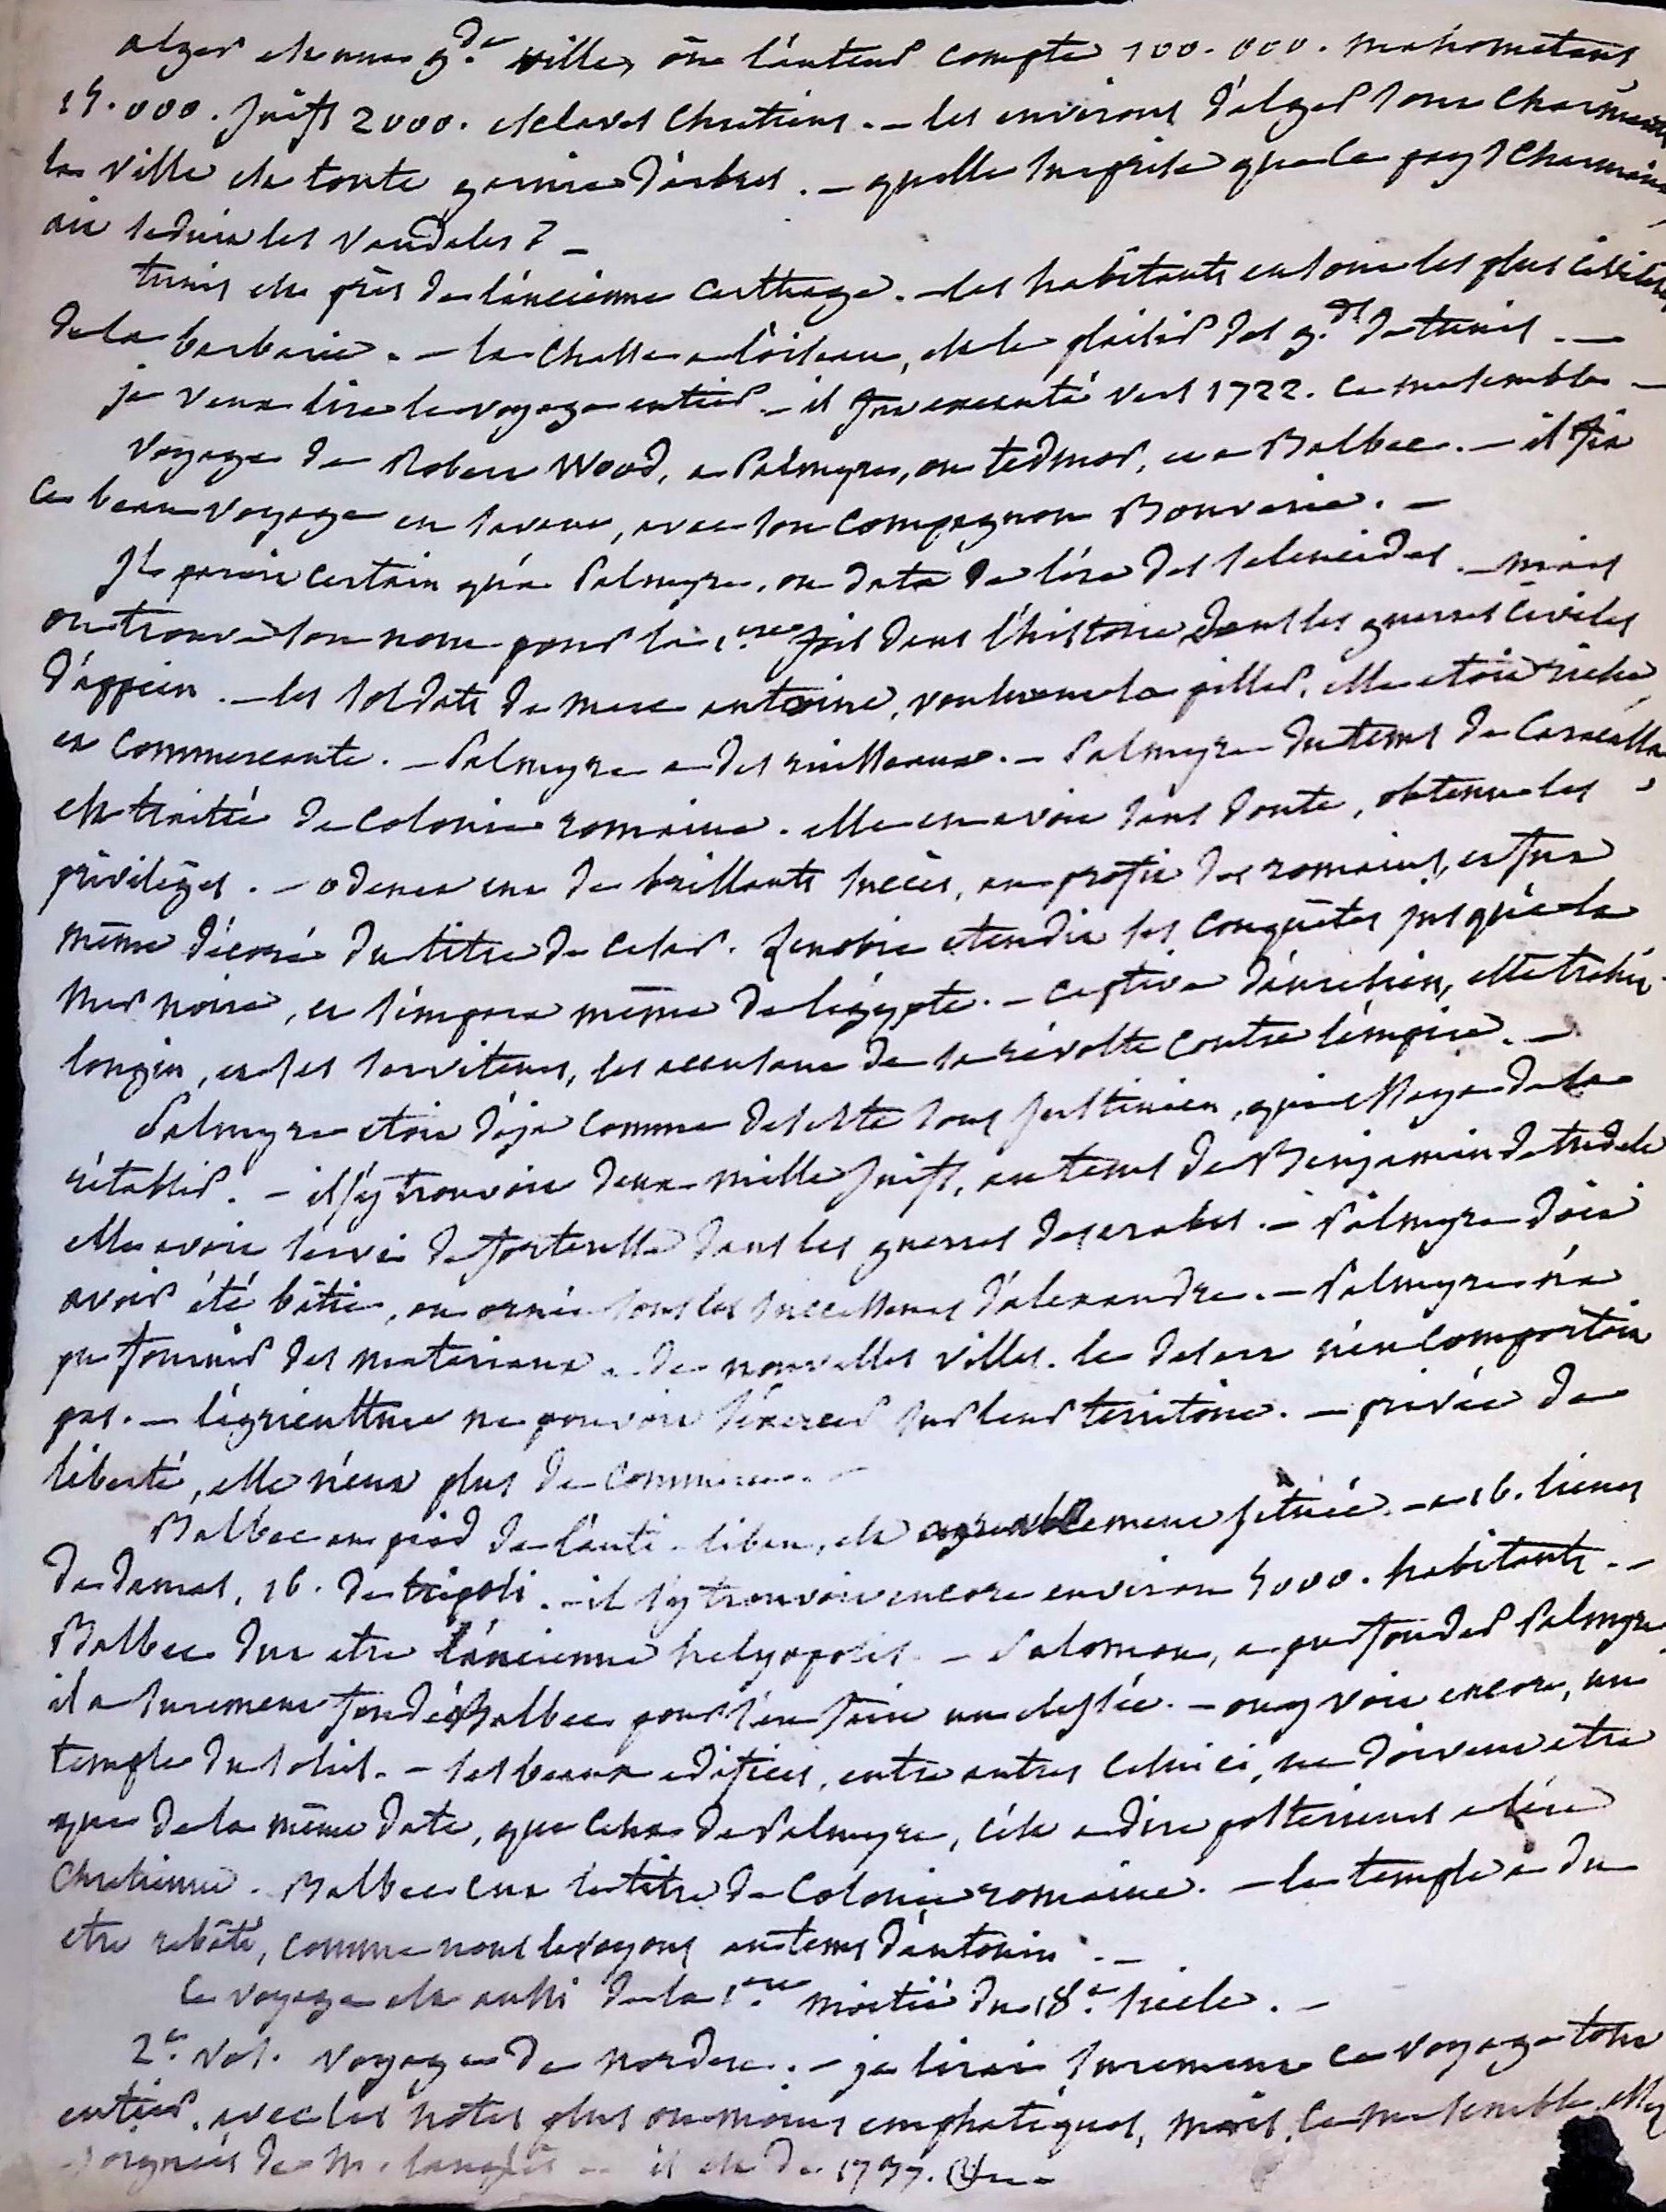 alger est une g.de ville, où l'auteur compte 100.000. mahometans
15.000. juifs 2000. esclaves chretiens. — les environs d'alger sont charmans
la ville est toute garnie d'arbres. — quelle surprise que le pays charmant
où seduit les vandales? —
tunis est près de l'ancienne carthage. — les habitants en sont les plus civilisés
de la barbarie. — la chasse a l'oiseau, est le plaisir des g.ds de tunis. —
je veux lire le voyage entier — il fut executé vers 1722. ce me semble —
voyage de Robert Wood, a Palmyre, ou tedmor, et a Balbec. — il fit
ce beau voyage en savant, avec son compagnon Bouverie. —
Il paroit certain qu'a Palmyre, on data de l'ère des seleucides. — mais
on trouve son nom pour la 1.ere fois dans l'histoire dans les guerres civiles
d'appien. — les soldats de marc antoine, voulurent la piller, elle etoit riche
et commercante. — Palmyre a des ruisseaux. — Palmyre du tems de Caracalla
est traitée de colonie romaine. elle en avoit sans doute, obtenu les
privilèges. — odenat eut de brillants succès, au profit des romains, et fut
même décoré du titre de cesar. zenobie etendit ses conquêtes jusqu'à la
mer noire, et s'empara même de l'égypte. — captive d'aurelien, elle trahit
longin, et ses serviteurs, les accusant de sa révolte contre l'empire. —
Palmyre etoit déja comme deserte sous justinien, qui essaya de la
rétablir. — il s'y trouvoit deux mille juifs, au tems de Benjamin de tudele
elle avoit servi de forteresse dans les guerres des arabes. — Palmyre doit
avoir été bâtie, ou ornée sous les successeurs d'alexandre. — Palmyre n'a
pu fournir des materiaux a de nouvelles villes. le desert n'en comportoit
pas. — l'agriculture ne pouvoit s'exercer sur leur territoire. — privée de
liberté, elle n'eut plus de commerce. —
Balbec au pied de l'anti-liban, est agreablement située. — a 16. lieues
de damas, 16. de tripoli. — il s'y trouvoit encore environ 5000. habitants. —
Balbec dut etre l'ancienne helyopolis. — Salomon, a pu fonder Palmyre
il a surement fondé Balbec pour s'en faire une
temple du soleil. — ses beaux edifices, entre autres celui ci, ne doivent etre
que de la même date, que ceux de Palmyre, c'est a dire posterieurs a l'ère
chretienne. Balbec eut le titre de colonie romaine. — le temple a du
etre rebâti, comme nous le voyons au tems d'antonin. —
ce voyage est aussi de la 1.ere moitié du 18.e siecle. —
2.e vol. voyage de norden. — je lirai surement ce voyage tout
entier, avec les notes plus ou moins emphatiques, mais, ce me semble,
soignées de M. langlès — il est de 1737.